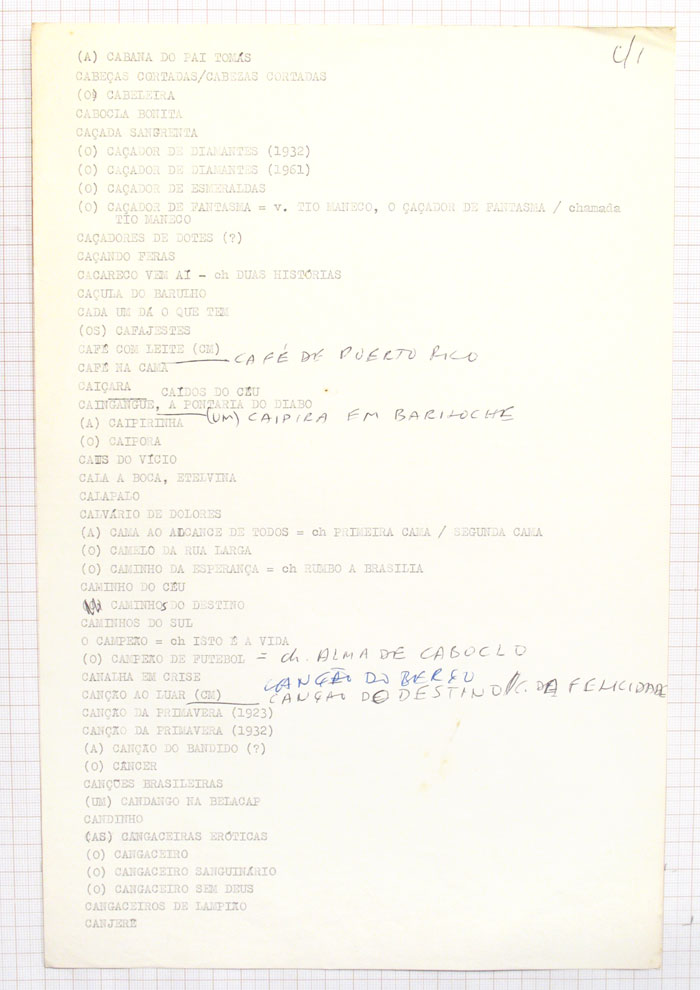 C/1
(A) CABANA DO PAI TOMÁS
CABEÇAS CORTADAS/CABEZAS CORTADAS
(O) CABELEIRA
CABOCLA BONITA
CAÇADA SANGRENTA
(O) CAÇADOR DE DIAMANTES (1932)
(O) CAÇADOR DE DIAMANTES (1961)
(O) CAÇADOR DE ESMERALDAS
(O) CAÇADOR DE FANTASMA = v. TIO MANECO, O ÇAÇADOR DE FANTASMA / chamada
TIO MANECO
CAÇADORES DE DOTES (?)
CAÇANDO FERAS
CACARECO VEM AÍ - ch DUAS HISTÓRIAS
CAÇULA DO BARULHO
CADA UM DÁ O QUE TEM
(OS) CAFAJESTES
CAFÉ COM LEITE (CM)
CAFÉ DE PUERTO RICO
CAFÉ NA CAMA
CAIÇARA
CAÍDOS DO CÉU
CAINGANGUE, A PONTARIA DO DIABO
(UM) CAIPIRA EM BARILOCHE
(A) CAIPIRINHA
(O) CAIPORA
CAIS DO VÍCIO
CALA A BOCA, ETELVINA
CALAPALO
CALVÁRIO DE DOLORES
(A) CAMA AO ALCANCE DE TODOS = ch PRIMEIRA CAMA / SEGUNDA CAMA
(O) CAMELO DA RUA LARGA
(O) CAMINHO DA ESPERANÇA = ch RUMBO A BRASILIA
CAMINHO DO CÉU
CAMINHOS DO DESTINO
CAMINHOS DO SUL
O CAMPEÃO = ch ISTO É A VIDA
(O) CAMPEÃO DE FUTEBOL = ch. ALMA DE CABOCLO
CANALHA EM CRISE
CANÇÃO DO BERÇO
CANÇÃO AO LUAR (CM)
CANÇÃO DO DESTINO / C. DA FELICIDADE
CANÇÃO DA PRIMAVERA (1923)
CANÇÃO DA PRIMAVERA (1932)
(A) CANÇÃO DO BANDIDO (?)
(O) CÂNCER
CANÇÕES BRASILEIRAS
(UM) CANDANGO NA BELACAP
CANDINHO
(AS) CANGACEIRAS ERÓTICAS
(O) CANGACEIRO
(O) CANGACEIRO SANGUINÁRIO
(O) CANGACEIRO SEM DEUS
CANGACEIROS DE LAMPIÃO
CANJERÊ